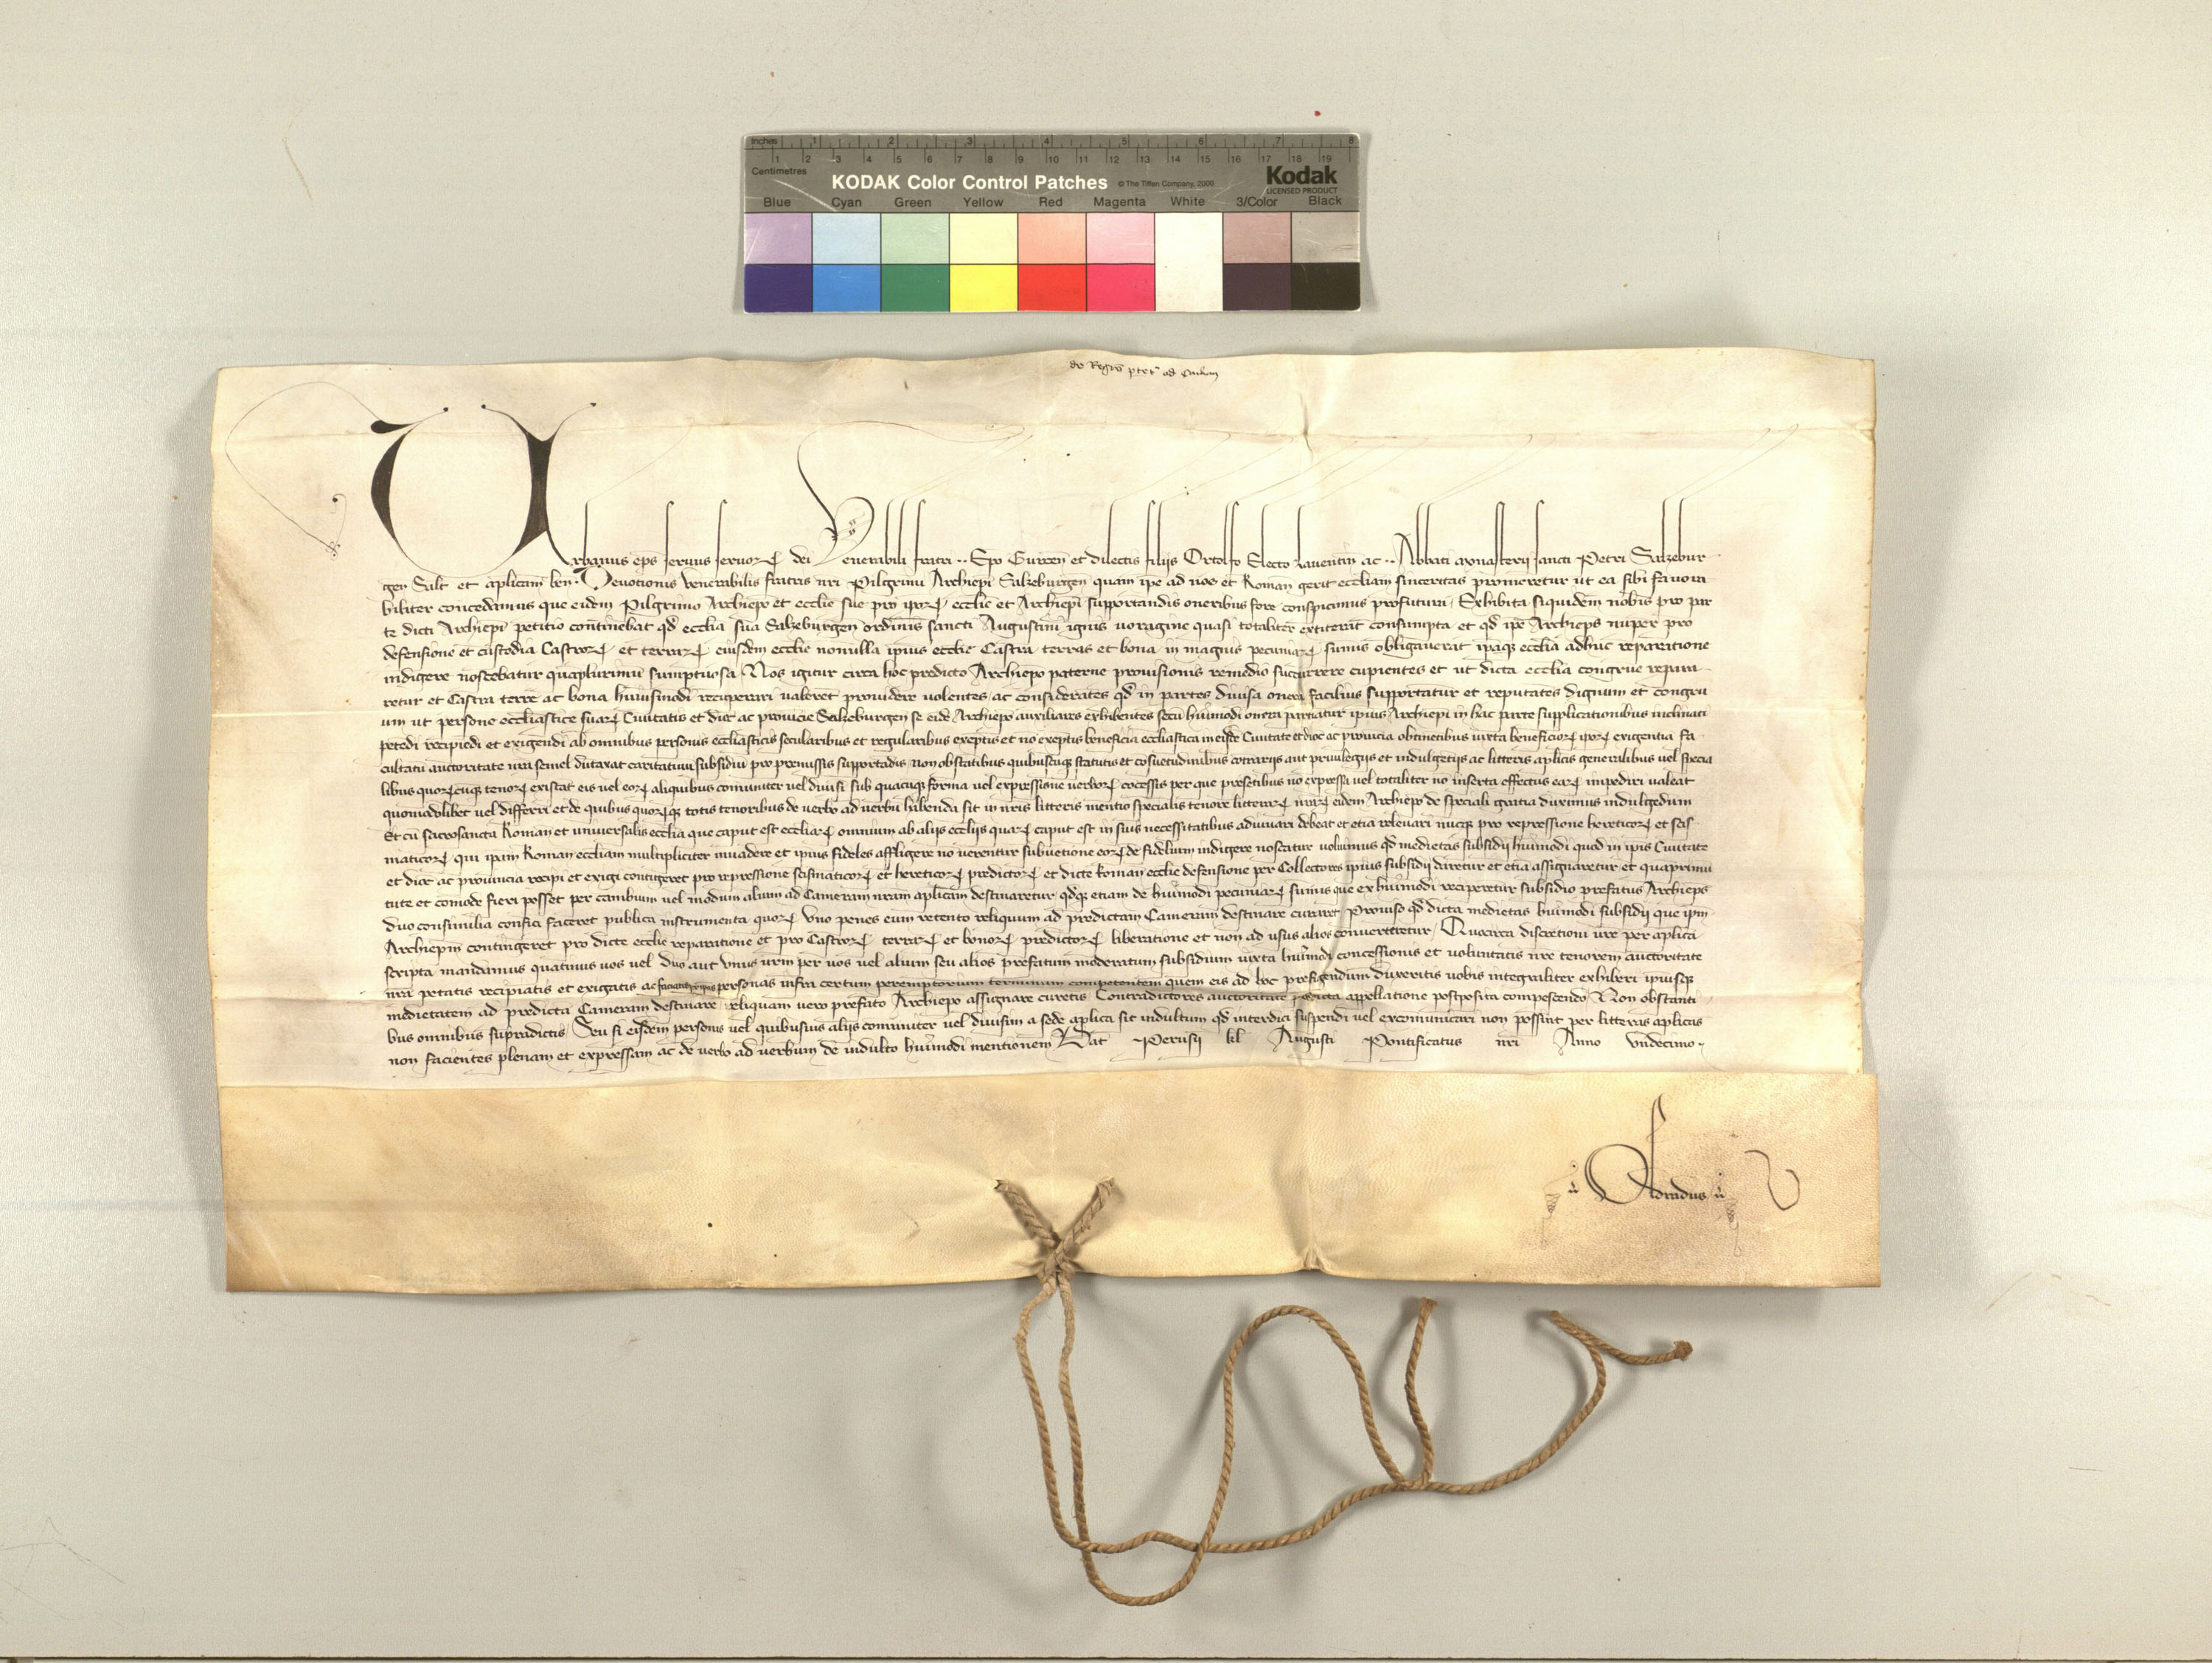 Inches 1 2 3 4 5 6 7 8
1 2 3 4 5 6 7 8 9 10 11 12 13 14 15 16 17 18 19
Centimetres
KODAK Color Control Patches © The Tiffen Company, 2000 Kodak
LICENSED PRODUCT
Blue Cyan Green Yellow Red Magenta White 3/Color Black
Urbanus eps seruus seruoꝝ dei Venerabili fratri ·· Epo Gurcen et dilectis filijs Ortolfo Electo Lauentin ac ·· Abbati monasterij sancti Petri Salzebur-
gen Salt et aplicam ben. Deuotionis venerabilis fratris nri Pilgrimi Archiepi Salzeburgen quam ipe ad nos et Roman gerit eccliam sinceritas promeretur ut ea sibi fauora
biliter concedamus que eidem Pilgrimo Archiepo et ecclie sue pro ipoꝝ ecclie et Archiepi supportandis oneribus fore conspicimus profutura. Exhibita siquidem nobis pro par
te dicti Archiepi petitio continebat qd ecclia sua Salzeburgen ordinis sancti Augustini ignis uoragine quasi totaliter extiterit consumpta et qd ipe Archieps nuper pro
defensione et custodia Castroꝝ et terraꝝ eiusdem ecclie nonnulla ipius ecclie Castra terras et bona in magnis pecuniaꝝ sumis obligauerat ipaqꝫ ecclia adhuc reparatione
indigere noscebatur quaplurimu sumptuosa Nos igitur circa hoc predicto Archiepo paterne prouisionis remedio succurrere cupientes et ut dicta ecclia congrue repara-
retur et Castra terre ac bona huiusmodi recuperari ualeret prouidere uolentes ac considerates qd in partes diuisa onera facilius supportatur et reputates dignum et congru
um ut persone eccliastice suaꝝ Ciuitatis et dioc ac prouicie Salzeburgen se eide Archiepo auxiliares exhibentes secu humodi onera partiatur ipius Archiepi in hac parte supplicationibus inclinati
petedi recipiedi et exigendi ab omnibus personis eccliasticis secularibus et regularibus exeptis et no exeptis beneficia eccliastica in eisde Ciuitate et dioc ac prouicia obtinetibus iuxta beneficioꝝ ipoꝝ exigentia fa
cultatu auctoritate nra semel dutaxat caritatiuu subsidiu pro premissis supportadis non obstatibus quibuscuqꝫ statutis et cosuetudinibus cotrarijs aut priuilegijs et indulgetijs ac litteris aplicis generalibus uel specia
libus quoꝝcuqꝫ tenoꝝ existat eis uel eoꝝ aliquibus comuniter uel diuisi sub quacuqꝫ forma uel expressione uerboꝝ cocessis per que presetibus no expressa uel totaliter no inserta effectus eaꝝ impediri ualeat
quomodolibet uel differri et de quibus quoꝝqꝫ totis tenoribus de uerbo ad uerbu habenda sit in nris litteris mentio specialis tenore litteraꝝ nraꝝ eidem Archiepo de speciali gratia duximus indulgedum
Et cu sacrosancta Roman et uniuersalis ecclia que caput est eccliaꝝ omnium ab alijs ecclijs quaꝝ caput est in suis necessitatibus adiuuari debeat et etia releuari nucqꝫ pro repressione hereticoꝝ et scis
maticoꝝ qui ipam Roman eccliam multipliciter inuadere et ipius fideles affligere no uerentur subuetione eoꝝde fidelium indigere noscatur uolumus qd medietas subsidij humodi quod in ipis Ciuitate
et dioc ac prouincia recipi et exigi contigeret pro repressione scismaticoꝝ et hereticoꝝ predictoꝝ et dicte Roman ecclie defensione per Collectores ipius subsidij daretur et etia assignaretur et quaprimu
tute et comode fieri posset per cambium uel modum alium ad Cameram nram aplicam destinaretur qdqꝫ etiam de humodi pecuniaꝝ sumis que ex humodi reciperetur subsidio prefatus Archieps
duo consimilia confici faceret publica instrumenta quoꝝ uno penes eum retento reliquum ad predictam Cameram destinare curaret Prouiso qd dicta medietas humodi subsidij que ipm
Archiepm contingeret pro dicte ecclie reparatione et pro Castroꝝ terraꝝ et bonoꝝ predictoꝝ liberatione et non ad usus alios conuerteretur. Quocirca discretioni ure per aplica
scripta mandamus quatinus uos uel duo aut unus urm per uos uel alium seu alios prefatum moderatum subsidium iuxta humodi concessionis et uoluntatis nre tenorem auctoritate
nra petatis recipiatis et exigatis ac personas infra certum peremptorium terminum competentem quem eis ad hoc prefigendum duxeritis uobis integraliter exhiberi ipiusqꝫ
medietatem ad predicta Cameram destinare reliquam uero prefato Archiepo assignare curetis Contradictores auctoritate appellatione postposita compescendo Non obstanti
bus omnibus supradictis Seu si eisdem personis uel quibusuis alijs comuniter uel diuisim a sede aplica sit indultum qd interdici suspendi uel excomunicari non possint per litteras aplicas
non facientes plenam et expressam ac de uerbo ad uerbum de indulto humodi mentionem Dat Perusij kl Augusti Pontificatus nri Anno Undecimo